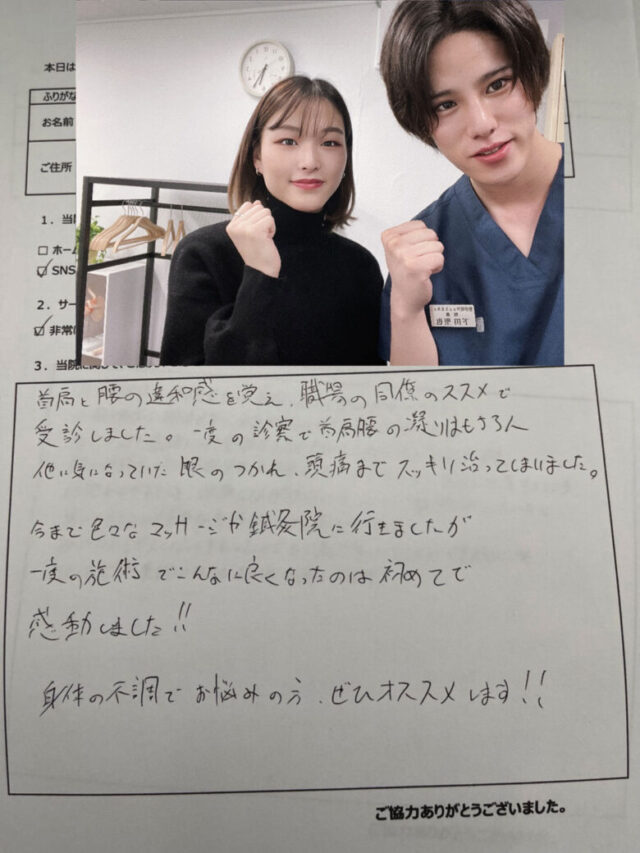 本日は
ふりがな
お名前
ご住所
1. 当
□ ホーム
☑ SNS
2. サー
☑ 非常に
3. 当院に
首肩と腰の違和感を覚え、職場の同僚のススメで
受診しました。一度の診察で首肩腰の凝りはもちろん
他に気になっていた眼のつかれ、頭痛までスッキリ治ってしまいました。
今まで色々なマッサージや鍼灸院に行きましたが
一度の施術でこんなに良くなったのは初めてで
感動しました!!
身体の不調でお悩みの方、ぜひオススメします!!
ご協力ありがとうございました。